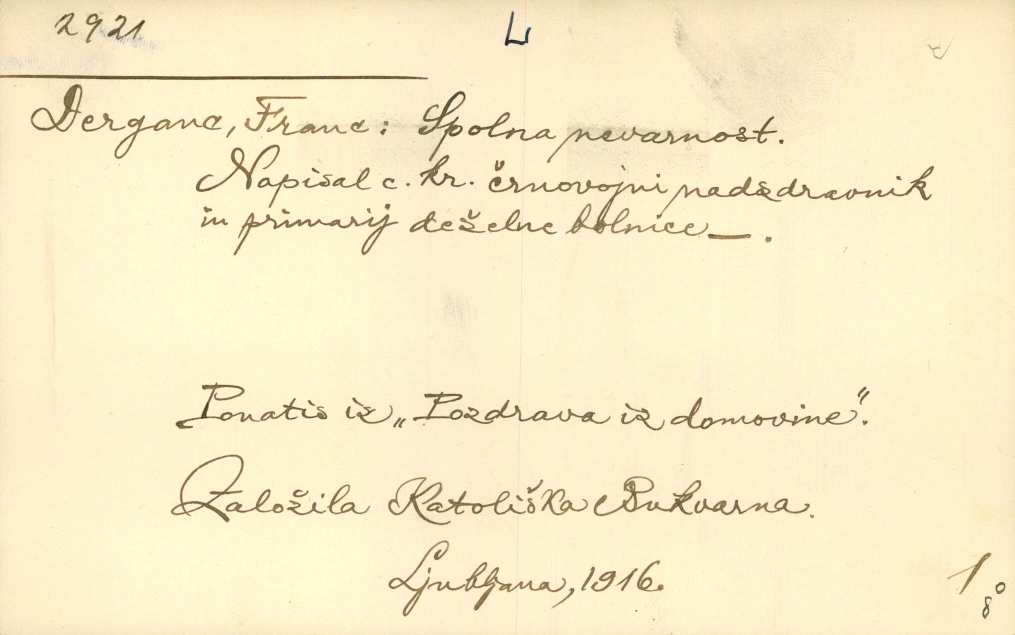 2921
L
Derganc, Franc: Spolna nevarnost.
Napisal c. kr. črnovojni nadzdravnik
in primarij deželne bolnice —.
Ponatis iz „Pozdrava iz domovine“.
Založila Katoliška Bukvarna.
Ljubljana, 1916.
1
8°